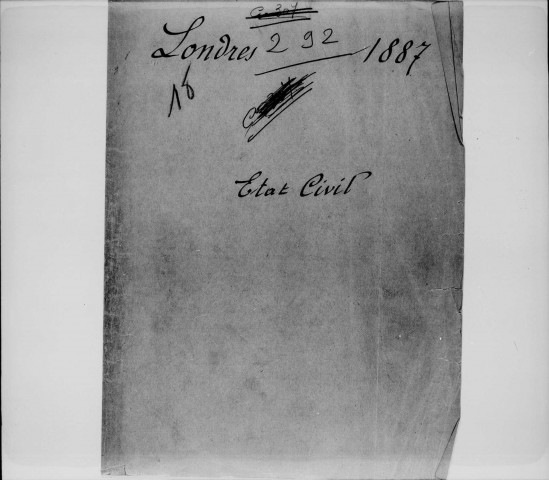 Londres 292 1887
18
Etat Civil